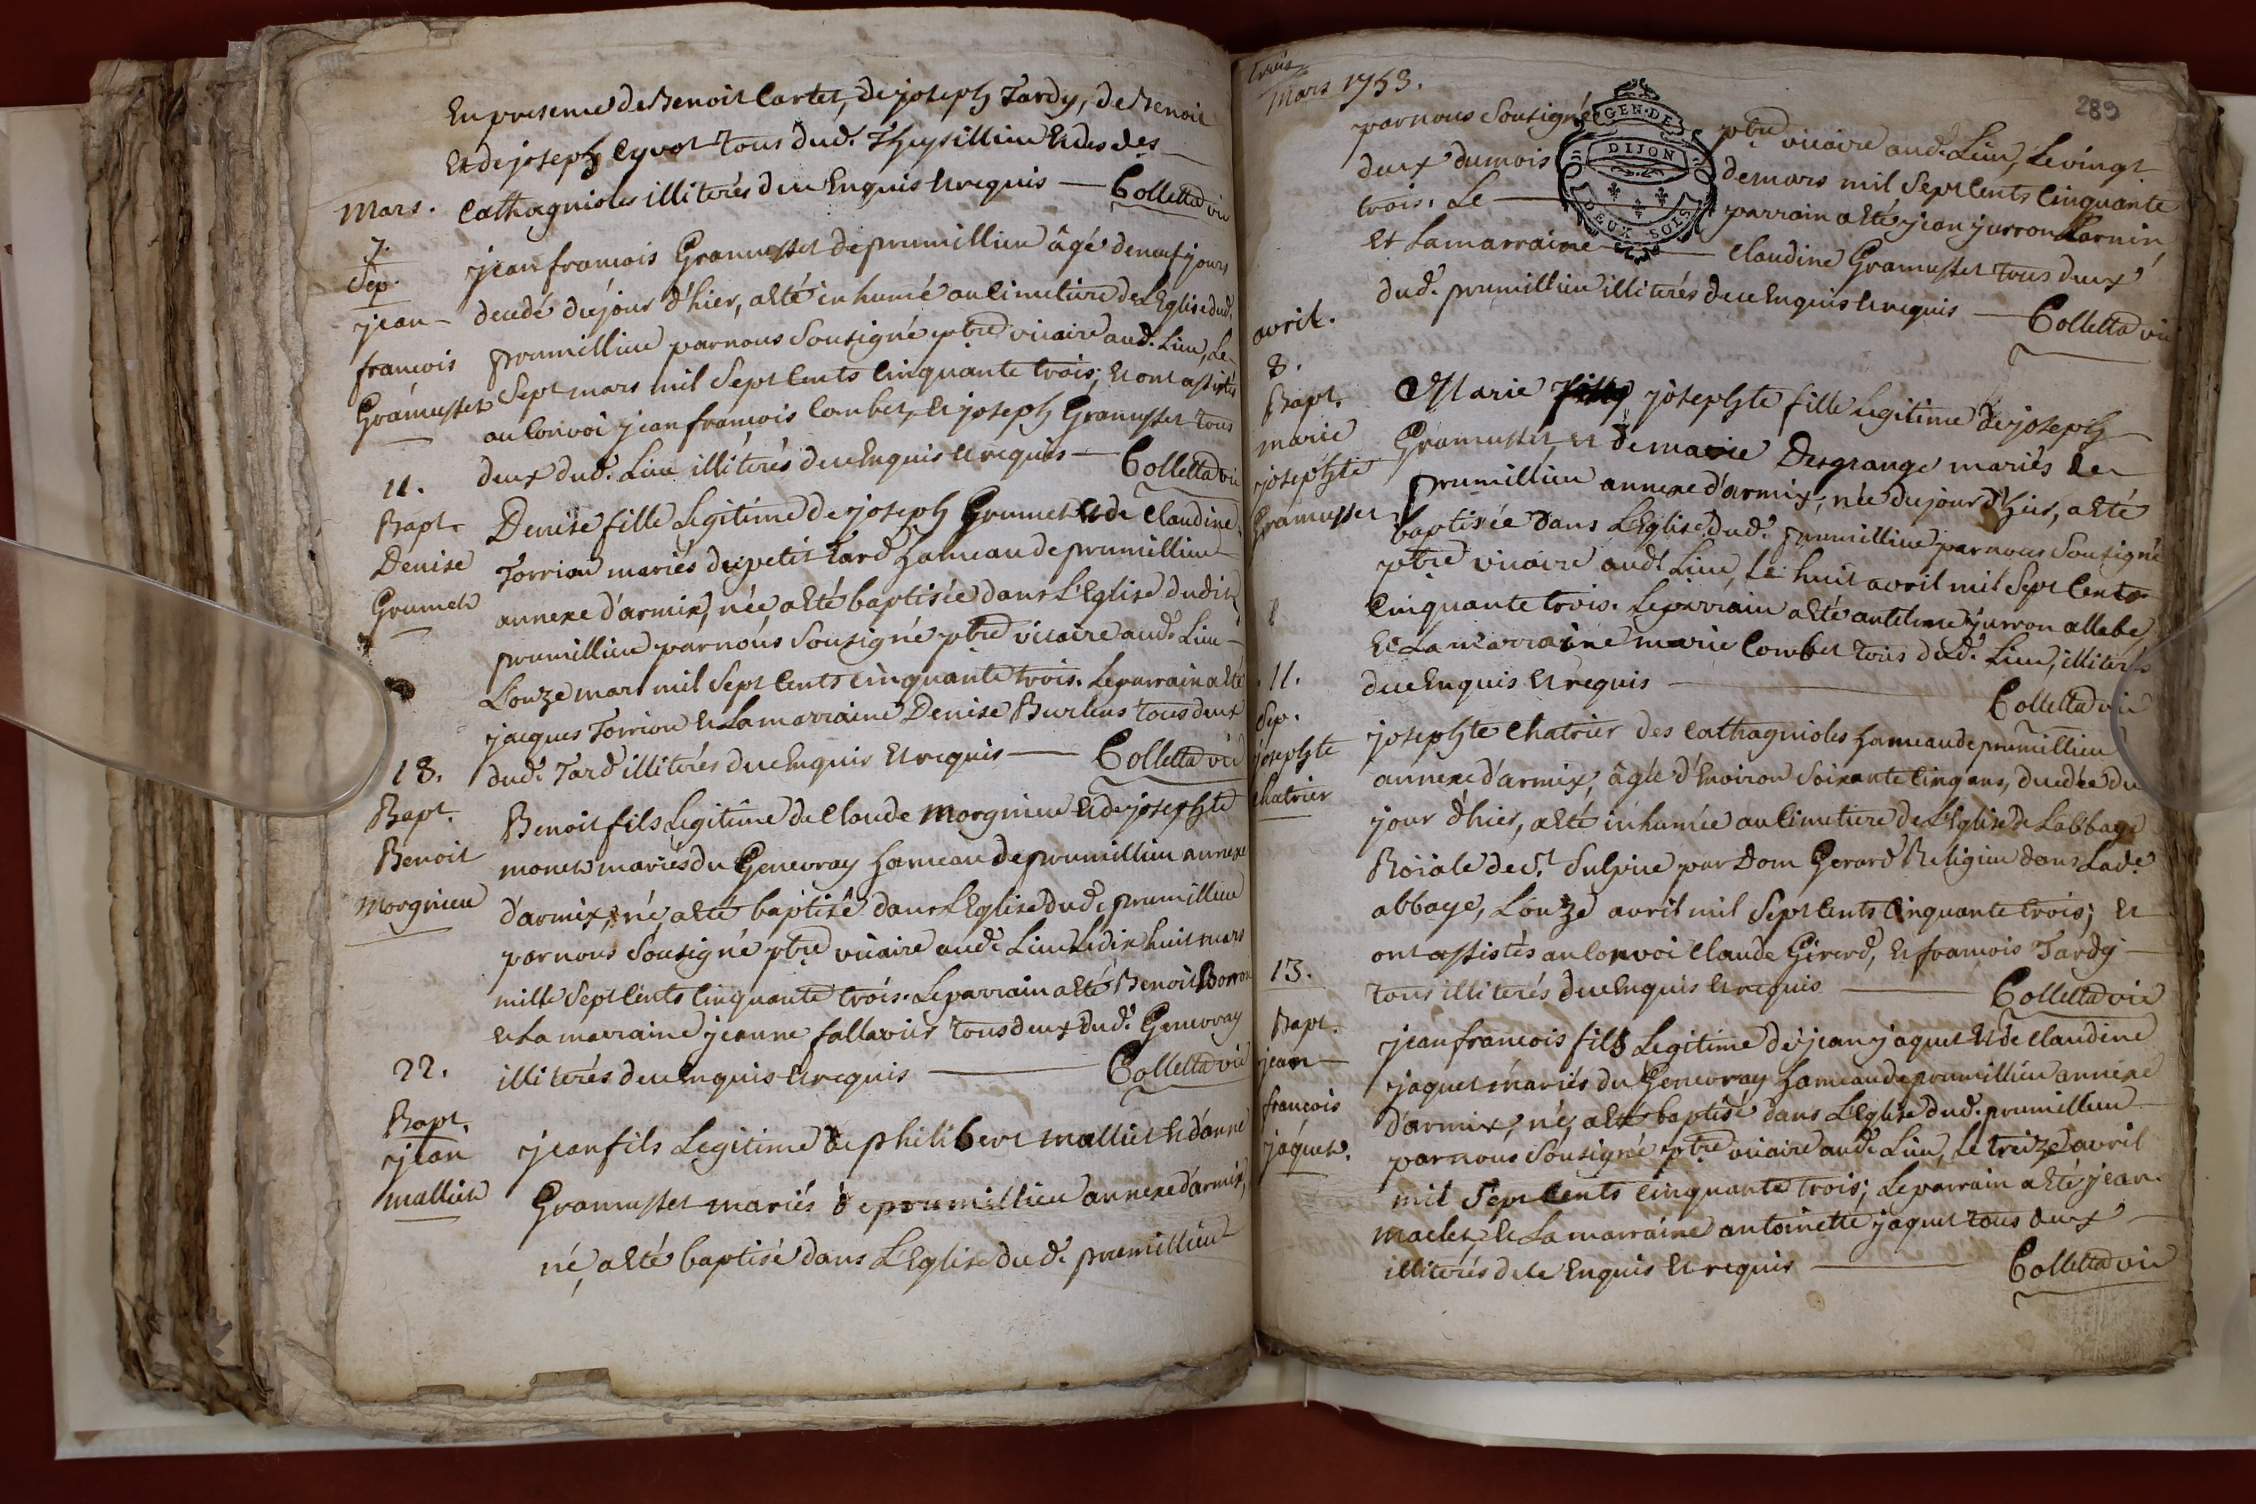 En presence de Benoit Cartet, de joseph Tardy, de Benoit
et de joseph Cyvot tous dud. Thuysillieu et des des
Cathagnioles illiterés de ce Enquis et requis — Colletta vic
Mars.
7.
Sep.
jean
francois
Gramusset
jean francois Gramusset de prumillieu âgé de neuf jours
decedé du jour d'hier, a eté inhumé au Cimetiere de L'Eglise dud.
prumillieu par nous Sousigné ptre vicaire aud. Lieu, Le
Sept mars mil Sept Cents Cinquante trois; et ont assistés
au Convoi jean francois Combet, et joseph Gramusset tous
deux dud. Lieu illiterés de ce Enquis et requis — Colletta vic
11.
Bapt.
Denise
Grumet
Denise fille Legitime de joseph Grumet et de Claudine
Torrion mariés du petit Tard hameau de prumillieu
annexe d'armix, née a eté baptisée dans L'Eglise dudit
prumillieu par nous Sousigné ptre vicaire aud. Lieu
L'onze mars mil Sept Cents Cinquante trois. Le parrain a eté
jacques Torrion et La marraine Denise Burlens tous deux
dud. Tard illiterés de ce Enquis et requis — Colletta vic
18.
Bapt.
Benoit
Morgnieu
Benoit fils Legitime de Claude Morgnieu et de josephte
monet mariés du Genevray hameau de prumillieu annexe
d'armix, né, a eté baptisé dans L'Eglise dud. prumillieu
par nous Sousigné ptre vicaire aud. Lieu Le dix huit mars
mille Sept Cents Cinquante trois. Le parrain a eté Benoit Borron
et La marraine jeanne fallavier tous deux dud. Genevray
illiterés de ce Enquis et requis — Colletta vic
22.
Bapt.
jean
malliet
jean fils Legitime de philibert malliet et d'anne
Gramusset mariés de prumillieu annexe d'armix,
né, a eté baptisé dans L'Eglise dud. prumillieu
trois
Mars 1753.
289
GEN. DE
DIJON
DEUX SOLS
par nous Sousigné ptre vicaire aud. Lieu, Le vingt
deux du mois de mars mil Sept Cents Cinquante
trois. Le — parrain a eté jean jurron
et La marraine — Claudine Gramusset tous deux
dud. prumillieu illiterés de ce Enquis et requis — Colletta vic
avril.
8.
Bapt.
marie
josephte
Gramusset
Marie josephte fille Legitime de joseph
Gramusset, et de marie Desgrange mariés de
prumillieu annexe d'armix, née du jour d'hier, a eté
baptisée dans L'Eglise dud. prumillieu par nous Sousigné
ptre vicaire aud. Lieu, Le huit avril mil Sept Cents
Cinquante trois. Le parrain a eté antelme jurron allabe
et La marraine marie Combet tous dud. Lieu, illiterés
de ce Enquis et requis — Colletta vic
11.
Sep.
josephte
Chatrier
josephte Chatrier des Cathagnioles hameau de prumillieu
annexe d'armix, âgée d'Environ Soixante Cinq ans, decedée du
jour d'hier, a eté inhumée au Cimetiere de L'Eglise de Labbaye
Roiale de St. Sulpice par Dom Gerard Religieu dans Lad.
abbaye, L'onze avril mil Sept Cents Cinquante trois; et
ont assistés au Convoi Claude Girerd, et francois Tardy
tous illiterés de ce Enquis et requis — Colletta vic
13.
Bapt.
jean
francois
jaquet.
jean francois fils Legitime de jean jaquet et de Claudine
jaquet mariés du Genevray hameau de prumillieu annexe
d'armix, né, a eté baptisé dans L'Eglise dud. prumillieu
par nous Sousigné ptre vicaire aud. Lieu, Le treize avril
mil Sept Cents Cinquante trois; Le parrain a eté jean
maclet et La marraine antoinette jaquet tous deux
illiterés de ce Enquis et requis — Colletta vic